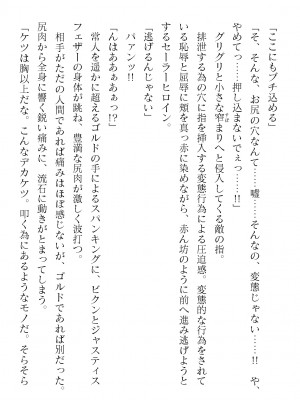 「ここにもブチ込める」
「そ、そんな、お尻の穴なんて……嘘……そんなの、変態じゃない……!!
やめてっ……!! 押し込まないでぇっ……!!」
グリグリと小さな窄まりへと侵入してくる敵の指。
排泄する為の穴に指を挿入する変態行為による圧迫感。変態的な行為をされて
いる恥辱と屈辱に頬を真っ赤に染めながら、赤ん坊のように前へ進み逃げようと
するセーラーヒロイン。
「逃げるんじゃない」
パァンッ!!
「んはああぁあぁっ!?」
常人を遥かに超えるゴルドの手によるスパンキングに、ビクンとジャスティス
フェザーの身体が跳ね、豊満な尻肉が激しく波打つ。
相手がただの人間であれば痛みはほぼ感じないが、ゴルドであれば別だった。
尻肉から全身に響く鋭い痛みに、流石に動きがとまってしまう。
「ケツは胸以上だな。こんなデカケツ。叩く為にあるようなモノだ。そらそら